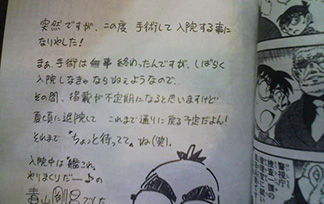 突然ですが、この度 手術して入院する事に
なりやした!
まぁ、手術は無事 終わったんですが、しばらく
入院しなきゃならねぇようなので、
その間、掲載が不定期になると思いますけど
夏頃に退院して これまで通りに戻る予定だよん!
それまで "ちょっと待ってて" ね(笑)。
入院中は "艦これ"
やりまくりだー♪の
青山剛昌でした
警視庁
捜査一課の